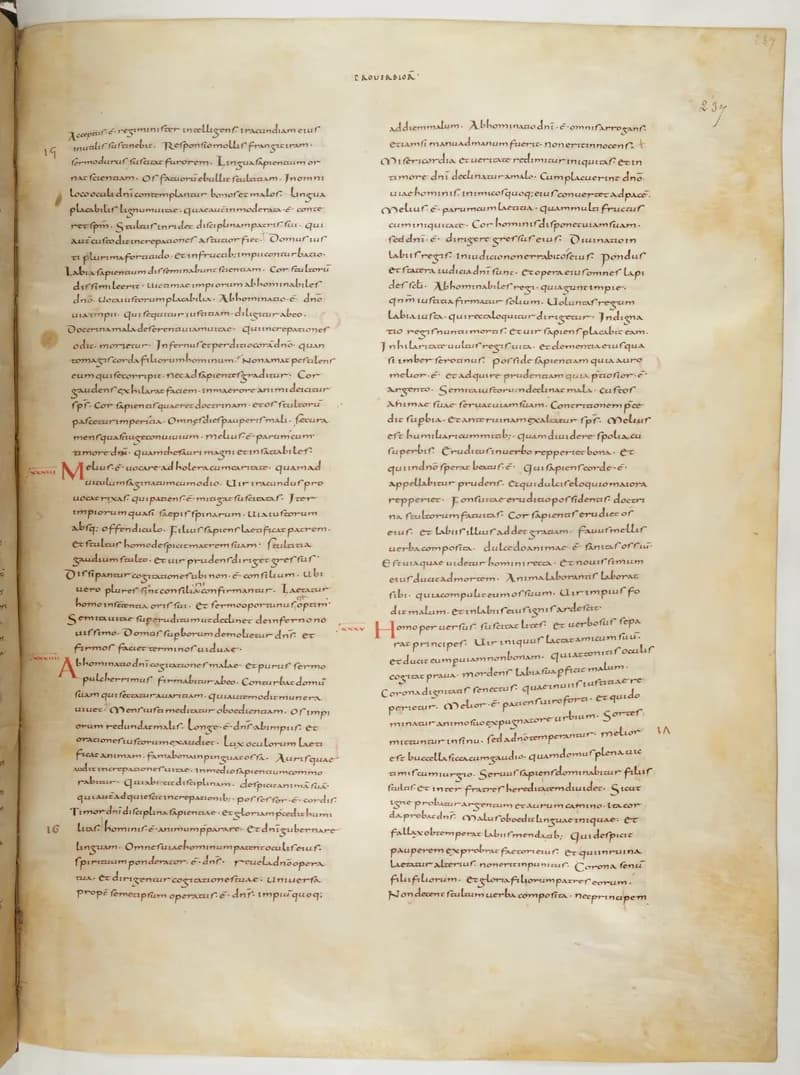 PROVERBIOR̄
237
237
Acceptus · ē · regi minister intelligens iracundiam eius
inutilis sustinebit · Responsio mollis frangit iram ·
15
sermo durus suscitat furorem · Lingua sapientium or
nat scientiam · Os fatuorū ebullit stultitiam · In omni
loco oculi dn̄i contemplantur bonos et malos · Lingua
placabilis lignum uitae · quae aut inmoderata · ē · conte
ret spm̄ · Stultus inridet disciplinam patris sui · qui
aut custodit increpationes astutior fiet · Domus ius
ti plurima fortitudo · Et in fructib; impii conturbatio ·
Labia sapientium disseminabunt scientiam · Cor stultorū
dissimile erit · Uictimae impiorum abhominabiles
dn̄o · Uota iustorum placabilia · Abhominatio · ē · dn̄o
uia impii · qui sequitur iustitiam · diligitur ab eo ·
Doctrina mala deserenti uiam uitae · qui increpationes
odit · morietur · Infernus et perditio corā dn̄o · quan
to magis corda filiorum hominum · Non amat pestilens
eum qui se corripit · nec ad sapientes graditur · Cor
gaudens exhilarat faciem · in maerore animi deicitur
sps̄ · Cor sapientis quaeret doctrinam · et os stultorū
pascetur imperitia · Omnes dies pauperis mali · secura
mens quasi iuge conuiuium · Melius · ē · parum cum
timore dn̄i · quam thesauri magni et insatiabiles ·
Melius · ē · uocare ad holera cum caritate · quam ad
uitulum saginatum cum odio · Uir iracundus pro
uocat rixas · qui patiens · ē · mitigat suscitatas · Iter
impiorum quasi saepis spinarum · Uia iustorum
absq; offendiculo · Filius sapiens laetificat patrem ·
Et stultus homo despicit matrem suam · Stultitia
gaudium stulto · Et uir prudens diriget gressus ·
Dissipantur cogitationes ubi non · ē · consilium · Ubi
uero plures sint consiliarii confirmantur · Laetatur
homo in sententia oris sui · Et sermo oportunus optim'
Semita uitae super eruditum ut declinet de inferno no
uissimo · Domus supborum demolietur dn̄s · Et
firmos faciet terminos uiduae ·
Abhominatio dn̄i cogitationes malae · Et purus sermo
pulcherrimus firmabitur ab eo · Conturbat domū
suam qui sectatur auaritiam · qui autem odit munera
uiuet · Mens iusti meditatur oboedientiam · Os impi
orum redundat malis · Longe · ē · dn̄s ab impiis · Et
orationes iustorum exaudiet · Lux oculorum laeti
ficat animam · fama bona inpinguat ossa · Auris quae
audit increpationes uitae · in medio sapientium commo
rabitur · Qui abicit disciplinam · despicit animā suā ·
qui aut adquiescit increpationib; possessor · ē · cordis ·
Timor dn̄i disciplina sapientiae · Et gloriam praecedit humi
16
litas · hominis · ē · animum pparare · Et dn̄i gubernare
linguam · Omnes uiae hominum patent oculis eius ·
spirituum ponderator · ē · dn̄s · reuela dn̄o opera
tua · Et dirigentur cogitationes tuae · Uniuersa
propt semetipsum operatus · ē · dn̄s · impiū quoq;
ad diem malum · Abhominatio dn̄i · ē · omnis arrogans ·
Etiam si manu ad manum fuerit · non erit innocens ·
Misericordia et ueritate redimitur iniquitas · Et in
timore dn̄i declinatur a malo · Cum placuerint dn̄o
uiae hominis · inimicos quoq; eius conuertet ad pacē ·
Melius · ē · parum cum iustitia · quam multi fructus
cum iniquitate · Cor hominis disponet uiam suam ·
sed dn̄i · ē · dirigere gressus eius · Diuinatio in
labiis regis · In iudicio non errabit os eius · Pondus
et statera iudicia dn̄i sunt · Et opera eius omnes lapi
des scli · Abhominabiles regi · qui agunt impie ·
qnm̄ iustitia firmatur solium · Uoluntas regum
labia iusta · qui recta loquitur dirigetur · Indigna
tio regis nuntii mortis · Et uir sapiens placabit eam ·
In hilaritate uultus regis uita · et clementia eius qua
si imber serotinus · Posside sapientiam quia auro
melior · ē · Et adquire prudentiam quia ptiosior · ē ·
Argento · Semita iustorum declinat mala · custos
Animae suae seruat uiam suam · Contritionem p̄ce
dit supbia · Et ante ruinam exaltatur sps̄ · Melius
est humiliari cum mitib; quam diuidere spolia cū
superbis · Eruditus in uerbo repperiet bona · Et
qui in dn̄o sperat beatus · ē · Qui sapiens corde · ē ·
appellabitur prudens · Et qui dulcis eloquio maiora
repperiet · Fons uitae eruditio possidentis · doctri
na stultorum fatuitas · Cor sapientis erudiet os
eius · Et labiis illius addet gratiam · Fauus mellis
uerba composita · dulcedo animae · ē · sanitas ossiū ·
Est uia quae uidetur homini recta · Et nouissimum
eius ducit ad mortem · Anima laborantis laborat
sibi · quia compulit eum os suum · Uir impius fo
dit malum · Et in labiis eius ignis ardescit ·
Homo peruersus suscitat lites · Et uerbosus sepa
rat principes · Uir iniquus lactat amicum suū ·
Et ducit eum per uiam non bonam · Qui attonitis oculis
cogitat praua · mordens labia sua pficit malum ·
Corona dignitatis senectus · quae in uiis iustitiae re
perietur · Melior · ē · patiens uiro forti · Et qui do
minatur animo suo expugnatore urbium · Sortes
mittuntur in sinu · sed a dn̄o temperantur · Melior
17
est buccella sicca cum gaudio · quam domus plena uic
timis cum iurgio · Seruus sapiens dominabitur filiis
stultis · Et inter fratres hereditatem diuidet · Sicut
igne probatur argentum et aurum camino · ita cor
da probat dn̄s · Malus oboedit linguae iniquae · Et
fallax obtemperat labiis mendacib; · Qui despicit
pauperem exprobrat factori eius · Et qui in ruina
laetatur alterius · non erit inpunitus · Corona senū
filii filiorum · Et gloria filiorum patres eorum ·
Non decent stultum uerba composita · nec principem